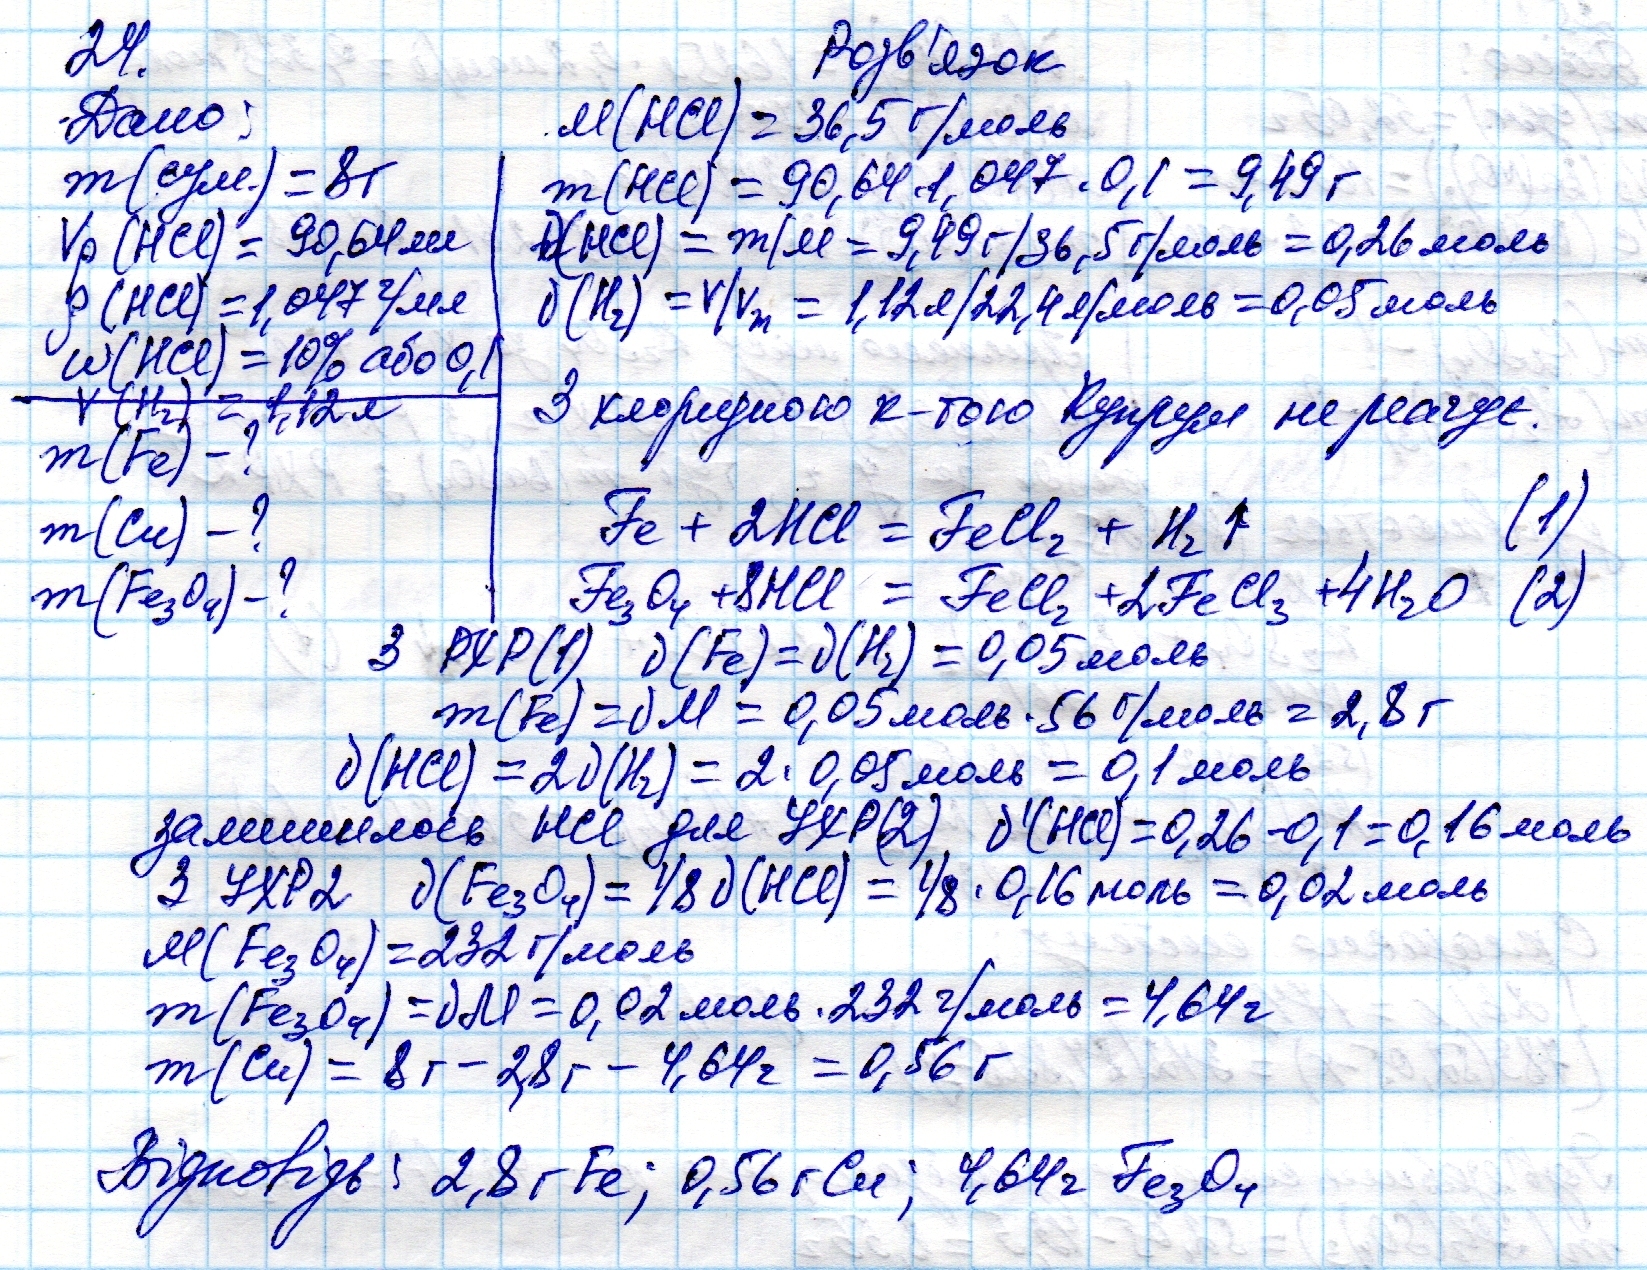 24.
Розв'язок
Дано:
m(сум.) = 8г
Vр(HCl) = 90,64мл
ρ(HCl) = 1,047г/мл
w(HCl) = 10% або 0,1
V(H₂) = 1,12л
m(Fe) - ?
m(Cu) - ?
m(Fe₃O₄) - ?
M(HCl) = 36,5 г/моль
m(HCl) = 90,64·1,047·0,1 = 9,49г
υ(HCl) = m/M = 9,49г/36,5г/моль = 0,26моль
υ(H₂) = V/Vm = 1,12л/22,4л/моль = 0,05моль
З хлоридною к-тою Купрум не реагує.
Fe + 2HCl = FeCl₂ + H₂↑ (1)
Fe₃O₄ + 8HCl = FeCl₂ + 2FeCl₃ + 4H₂O (2)
З РХР(1) υ(Fe) = υ(H₂) = 0,05моль
m(Fe) = υM = 0,05моль·56г/моль = 2,8г
υ(HCl) = 2υ(H₂) = 2·0,05моль = 0,1моль
залишилось HCl для УХР(2) υ'(HCl) = 0,26-0,1 = 0,16моль
З УХР2 υ(Fe₃O₄) = 1/8υ(HCl) = 1/8·0,16моль = 0,02моль
M(Fe₃O₄) = 232г/моль
m(Fe₃O₄) = υM = 0,02моль·232г/моль = 4,64г
m(Cu) = 8г - 2,8г - 4,64г = 0,56г
Відповідь: 2,8г Fe; 0,56г Cu; 4,64г Fe₃O₄